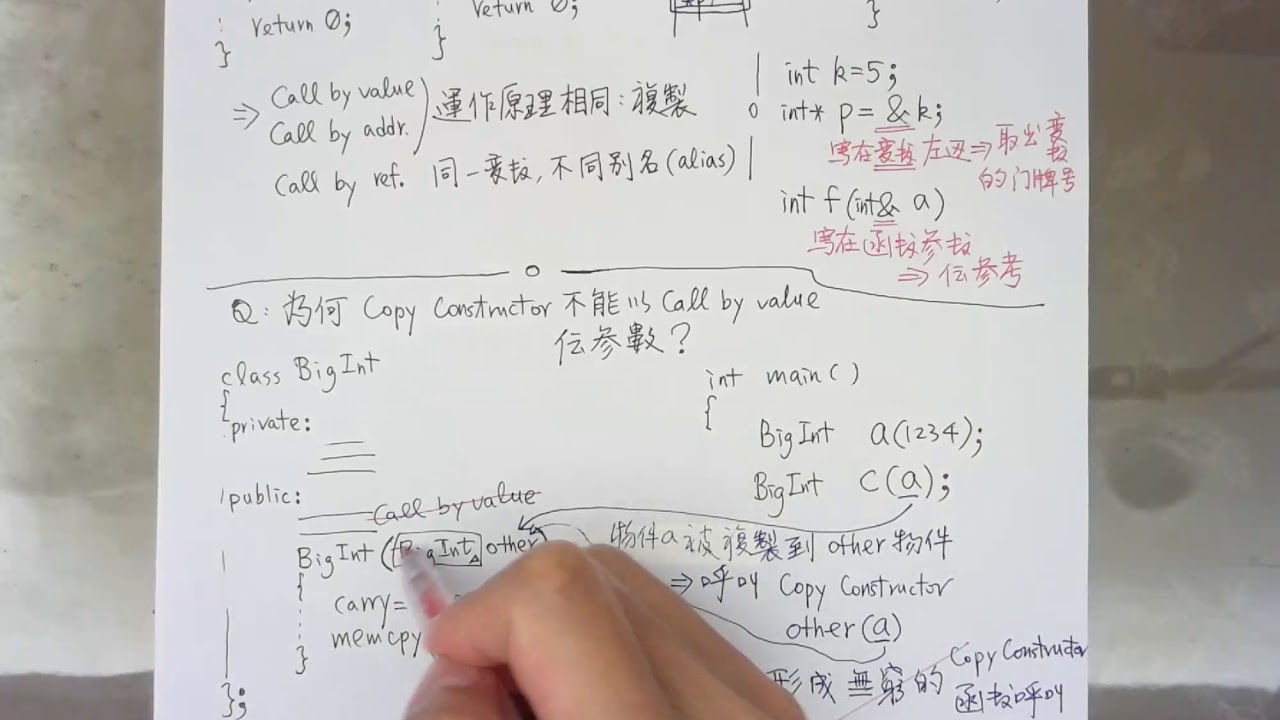 return 0;
}
return 0;
}
}
⇒ Call by value
Call by addr.
運作原理相同:複製
Call by ref. 同一变数,不同别名(alias)
int k=5;
int* p = &k;
写在变数左边⇒取出变数
的门牌号
int f(int& a)
写在函数参数
⇒传参考
Q: 為何 Copy Constructor 不能以 Call by value
传参數?
class BigInt
{
private:
public:
Call by value
BigInt(BigInt other)
{
carry=
memcpy
}
};
int main()
{
BigInt a(1234);
BigInt c(a);
物件a被複製到 other物件
⇒呼叫 Copy Constructor
other(a)
形成無窮的 Copy Constructor
函数呼叫